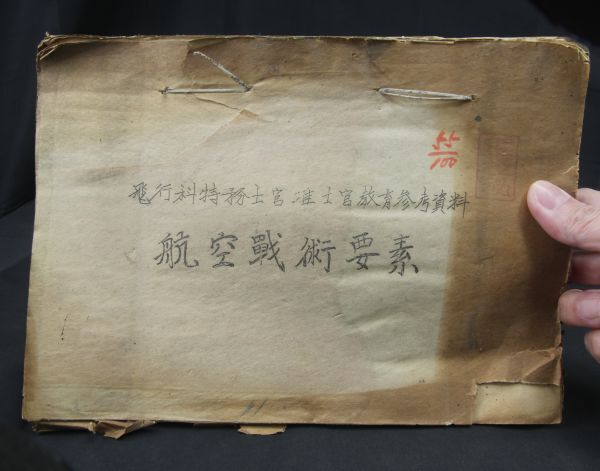 55/100
飛行科特務士官准士官教育参考資料
航空戰術要素